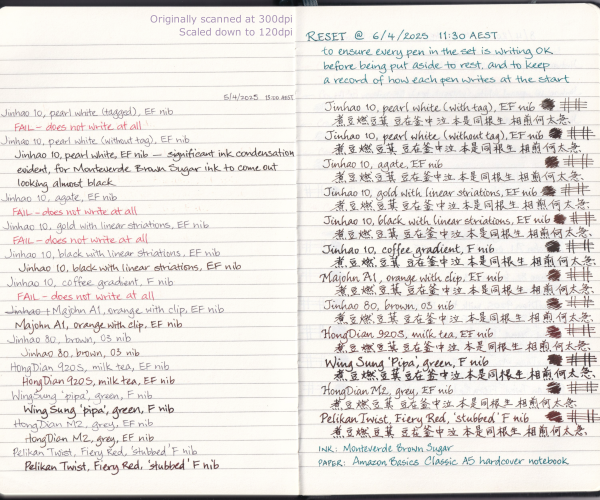 Originally scanned at 300dpi
Scaled down to 120dpi
5/4/2025 13:00 AEST
Jinhao 10, pearl white (tagged), EF nib
FAIL - does not write at all
Jinhao 10, pearl white (without tag), EF nib
Jinhao 10, pearl white, EF nib — significant ink condensation
evident, for Monteverde Brown Sugar ink to come out
looking almost black
Jinhao 10, agate, EF nib
FAIL - does not write at all
Jinhao 10, gold with linear striations, EF nib
FAIL - does not write at all
Jinhao 10, black with linear striations, EF nib
Jinhao 10, black with linear striations, EF nib
Jinhao 10, coffee gradient, F nib
FAIL - does not write at all
Jinhao 1 Majohn A1, orange with clip, EF nib
Majohn A1, orange with clip, EF nib
Jinhao 80, brown, 03 nib
Jinhao 80, brown, 03 nib
HongDian 920S, milk tea, EF nib
HongDian 920S, milk tea, EF nib
Wing Sung 'pipa', green, F nib
Wing Sung 'pipa', green, F nib
HongDian M2, grey, EF nib
HongDian M2, grey, EF nib
Pelikan Twist, Fiery Red, 'stubbed' F nib
Pelikan Twist, Fiery Red, 'stubbed' F nib
RESET @ 6/4/2025 11:30 AEST
to ensure every pen in the set is writing OK
before being put aside to rest, and to keep
a record of how each pen writes at the start
Jinhao 10, pearl white (with tag), EF nib
煮豆燃豆萁 豆在釜中泣 本是同根生 相煎何太急
Jinhao 10, pearl white (without tag), EF nib
煮豆燃豆萁 豆在釜中泣 本是同根生 相煎何太急
Jinhao 10, agate, EF nib
煮豆燃豆萁 豆在釜中泣 本是同根生 相煎何太急
Jinhao 10, gold with linear striations, EF nib
煮豆燃豆萁 豆在釜中泣 本是同根生 相煎何太急
Jinhao 10, black with linear striations, EF nib
煮豆燃豆萁 豆在釜中泣 本是同根生 相煎何太急
Jinhao 10, coffee gradient, F nib
煮豆燃豆萁 豆在釜中泣 本是同根生 相煎何太急
Majohn A1, orange with clip, EF nib
煮豆燃豆萁 豆在釜中泣 本是同根生 相煎何太急
Jinhao 80, brown, 03 nib
煮豆燃豆萁 豆在釜中泣 本是同根生 相煎何太急
HongDian 920S, milk tea, EF nib
煮豆燃豆萁 豆在釜中泣 本是同根生 相煎何太急
Wing Sung 'Pipa', green, F nib
煮豆燃豆萁 豆在釜中泣 本是同根生 相煎何太急
HongDian M2, grey, EF nib
煮豆燃豆萁 豆在釜中泣 本是同根生 相煎何太急
Pelikan Twist, Fiery Red, 'stubbed' F nib
煮豆燃豆萁 豆在釜中泣 本是同根生 相煎何太急
INK: Monteverde Brown Sugar
PAPER: Amazon Basics Classic A5 hardcover notebook